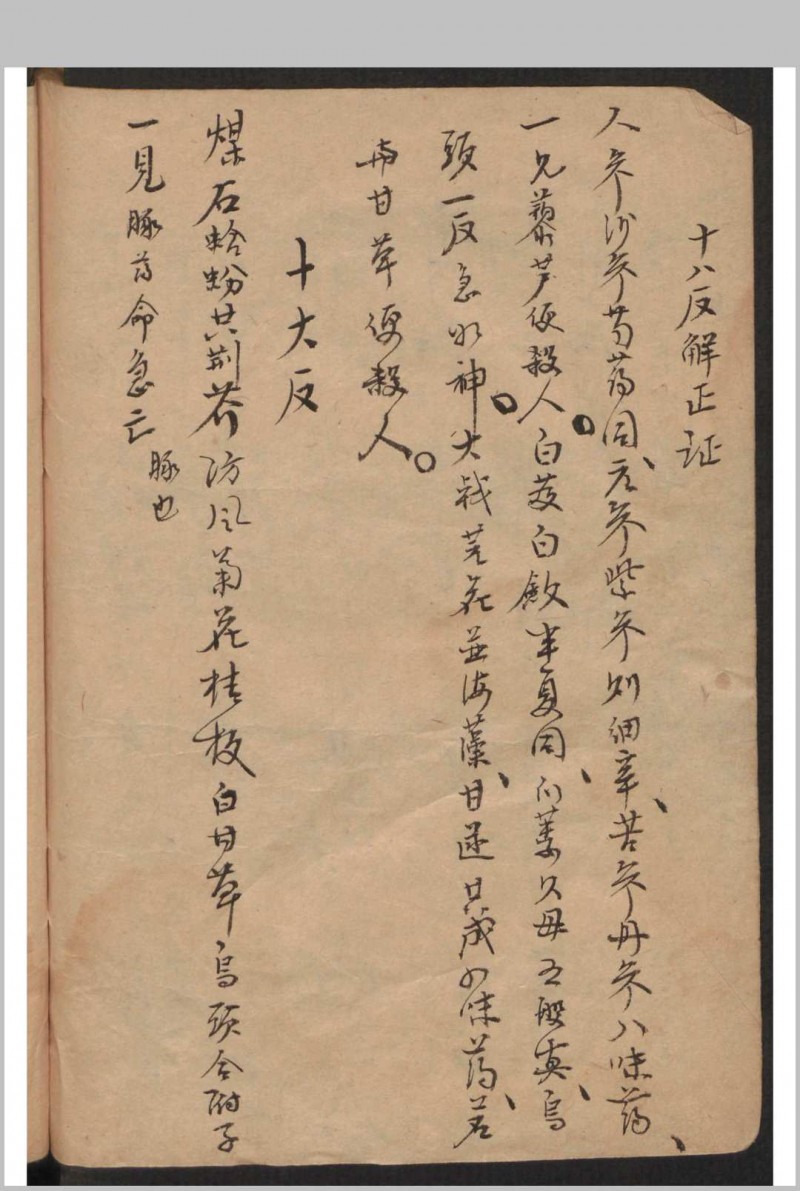 十八反解正证
人参沙参芍药同、元参紫参则细辛、苦参丹参八味药、
一見藜芦便殺人。白芨白斂半夏同、瓜蒌贝母五般真、烏
頭一反急如神。大戟芫花並海藻、甘遂共成四味药、若
与甘草便殺人。
十大反
煤石蛤蚧共荆芥防风菊花桔梗白甘草烏頭合附子
一見豚药命急亡 豚也